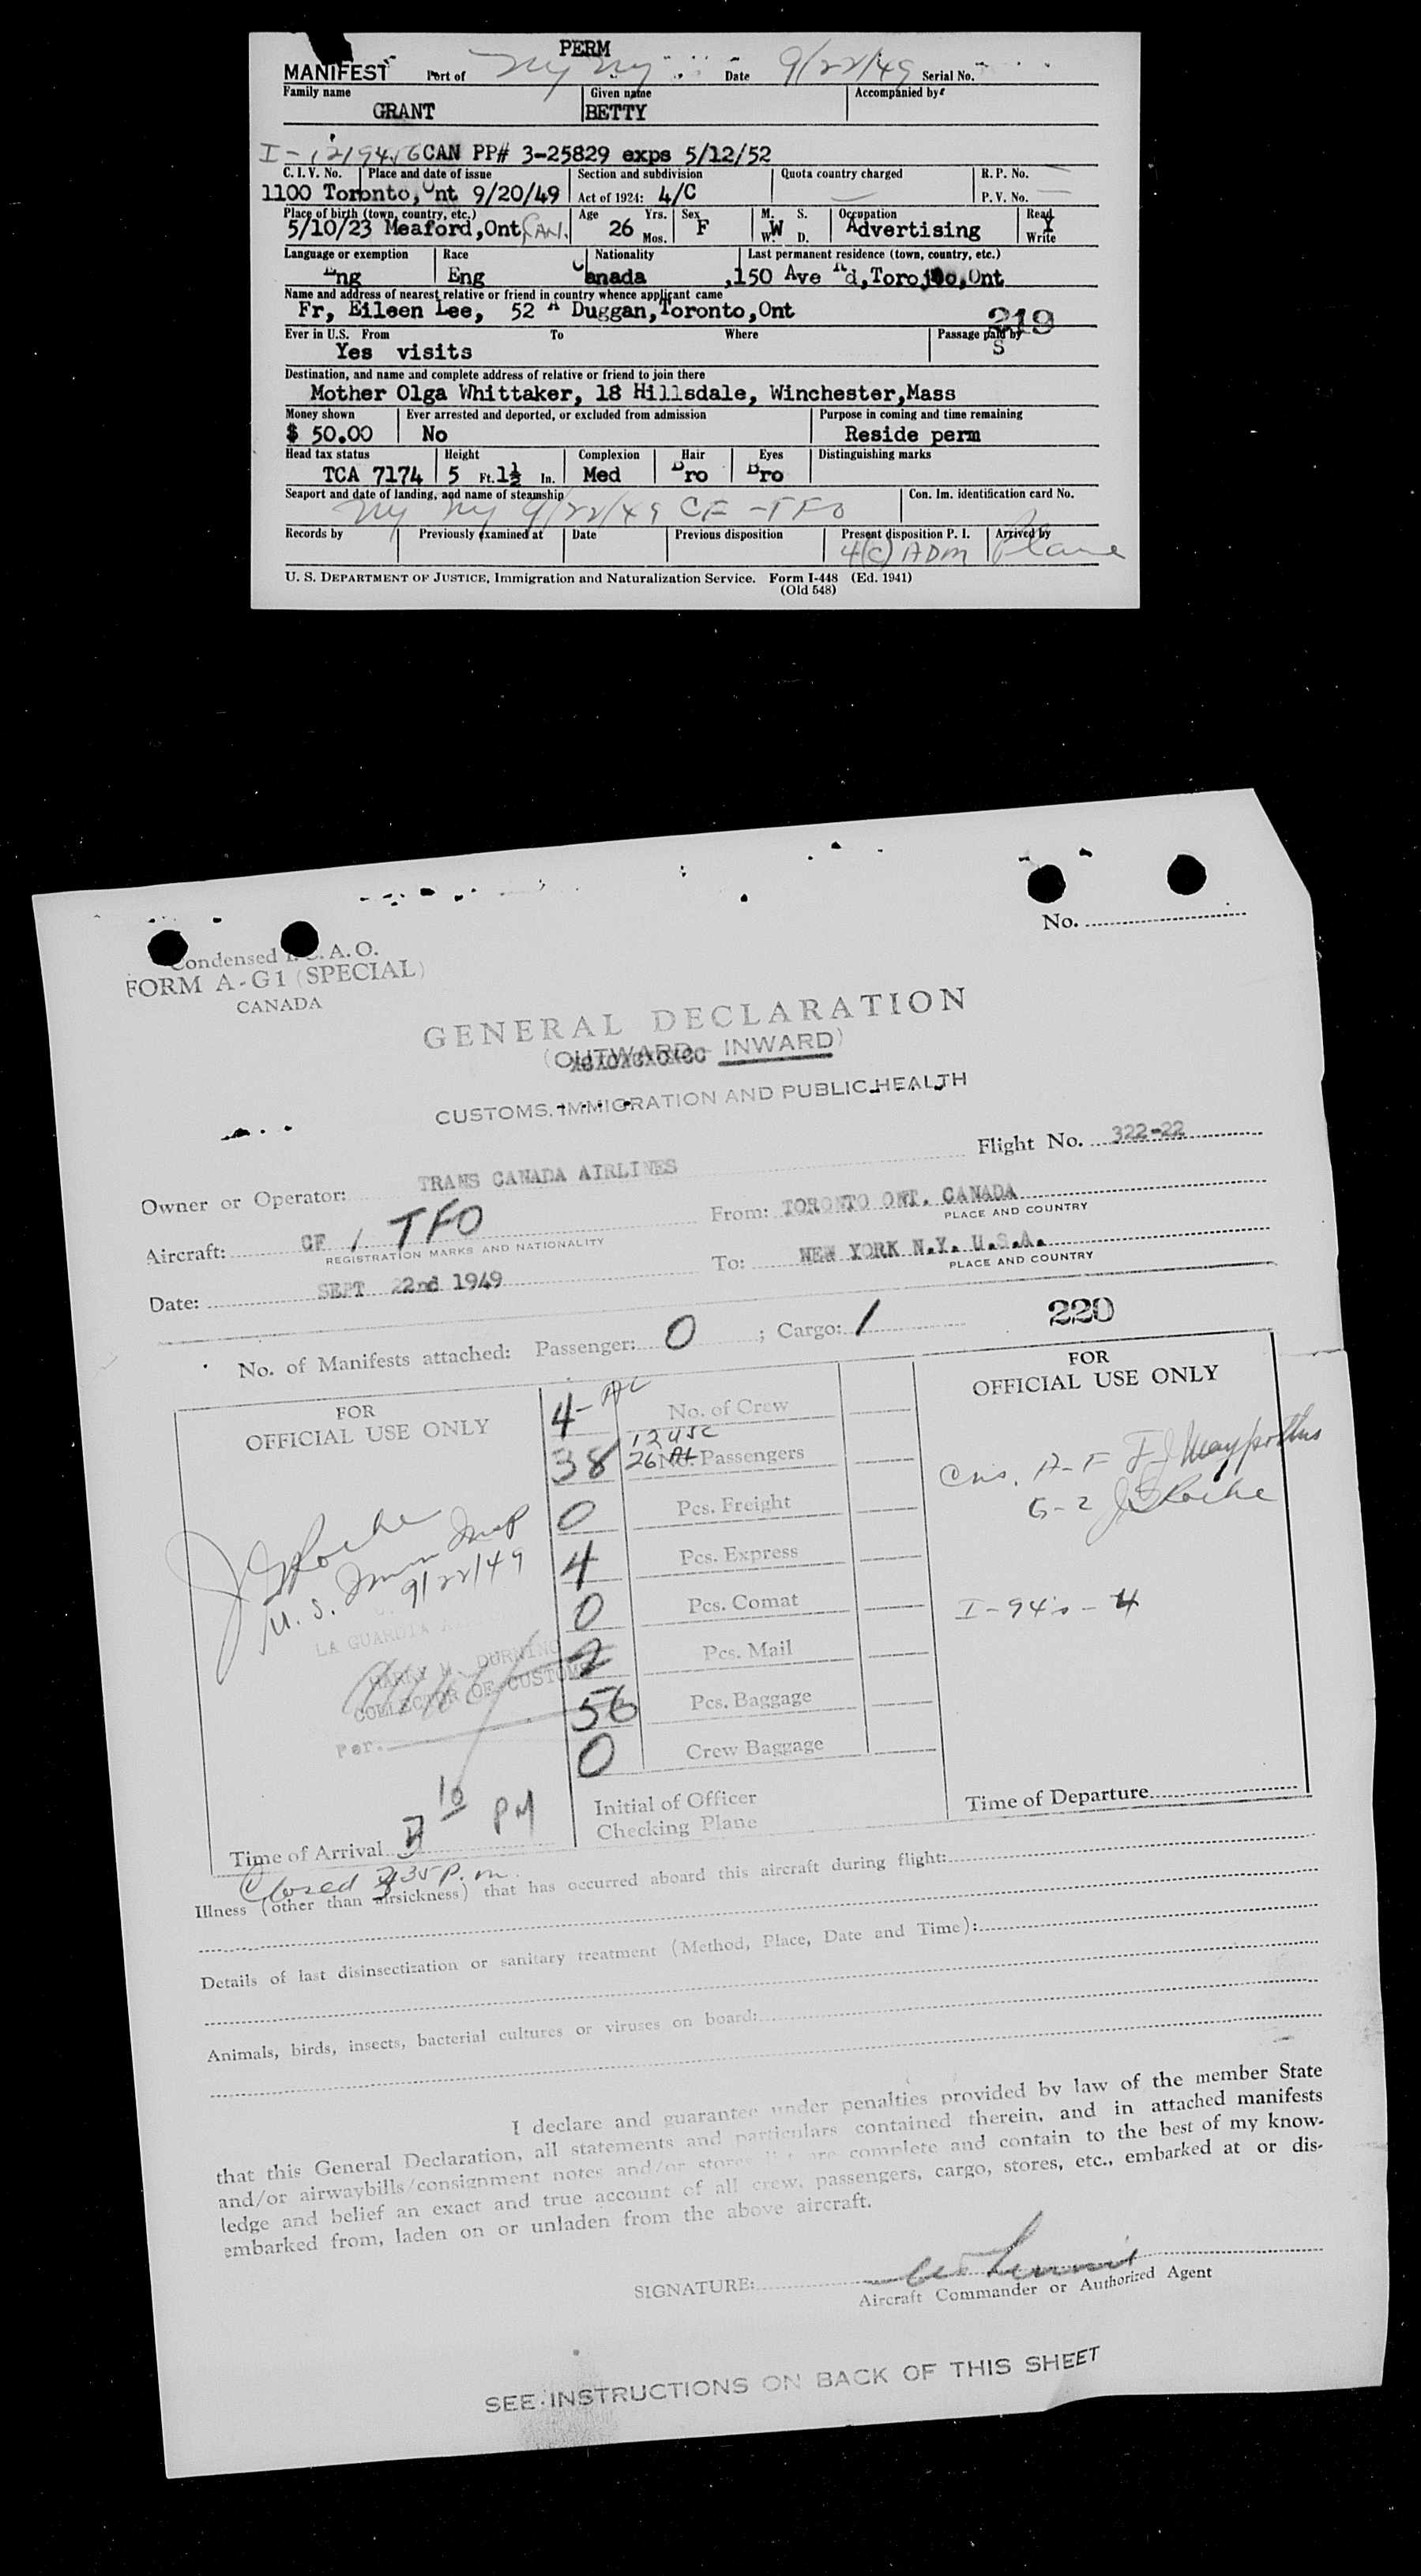 PERM
MANIFEST Port of NY NY Date 9/22/49 Serial No.
Family name Given name Accompanied by
GRANT BETTY
CAN PP# 3-25829 exps 5/12/52
C. I. V. No. Place and date of issue Section and subdivision Quota country charged R. P. No.
1100 Toronto, Ont 9/20/49 Act of 1924: 4/C P. V. No.
Place of birth (town, country, etc.) Age Yrs. Sex M. S. Occupation Read
5/10/23 Meaford, Ont, CAN. 26 Mos. F W W. D. Advertising Write
Language or exemption Race Nationality Last permanent residence (town, country, etc.)
Eng Eng Canada ,150 Ave Rd, Toronto, Ont
Name and address of nearest relative or friend in country whence applicant came
Fr, Eileen Lee, 52 A Duggan, Toronto, Ont
219
Ever in U.S. From To Where Passage paid by
Yes visits S
Destination, and name and complete address of relative or friend to join there
Mother Olga Whittaker, 18 Hillsdale, Winchester, Mass
Money shown Ever arrested and deported, or excluded from admission Purpose in coming and time remaining
$ 50.00 No Reside perm
Head tax status Height Complexion Hair Eyes Distinguishing marks
TCA 7174 5 Ft. 1½ In. Med Bro Bro
Seaport and date of landing, and name of steamship Con. Im. identification card No.
NY NY 9/22/49 CF-TFO
Records by Previously examined at Date Previous disposition Present disposition P. I. Arrived by
4(C) ADM Plane
U. S. DEPARTMENT OF JUSTICE, Immigration and Naturalization Service. Form I-448 (Ed. 1941)
(Old 548)
No.
Condensed I.C.A.O.
FORM A-G1 (SPECIAL)
CANADA
GENERAL DECLARATION
(OUTWARD - INWARD)
CUSTOMS, IMMIGRATION AND PUBLIC HEALTH
Flight No. 322-22
Owner or Operator: TRANS CANADA AIRLINES
From: TORONTO ONT. CANADA
PLACE AND COUNTRY
Aircraft: CF / TFO
REGISTRATION MARKS AND NATIONALITY
To: NEW YORK N.Y. U.S.A.
PLACE AND COUNTRY
Date: SEPT 22nd 1949
220
No. of Manifests attached: Passenger: 0 ; Cargo: 1
FOR
OFFICIAL USE ONLY
FOR
OFFICIAL USE ONLY
4-AL No. of Crew
12 USC
38 26 AL No. Passengers
0 Pcs. Freight
4 Pcs. Express
0 Pcs. Comat
2 Pcs. Mail
56 Pcs. Baggage
0 Crew Baggage
J Roche
U. S. Imm Insp
9/22/49
LA GUARDIA
HARRY M. DURNING
COLLECTOR OF CUSTOMS
Per.
G-2 J Roche
I-94's-4
Initial of Officer
Checking Plane
Time of Departure
Time of Arrival 10 PM
Closed 35 P.m.
Illness (other than airsickness) that has occurred aboard this aircraft during flight:
Details of last disinsectization or sanitary treatment (Method, Place, Date and Time):
Animals, birds, insects, bacterial cultures or viruses on board:
I declare and guarantee under penalties provided by law of the member State
that this General Declaration, all statements and particulars contained therein, and in attached manifests
and/or airwaybills/consignment notes and/or stores list are complete and contain to the best of my know-
ledge and belief an exact and true account of all crew, passengers, cargo, stores, etc., embarked at or dis-
embarked from, laden on or unladen from the above aircraft.
SIGNATURE:
Aircraft Commander or Authorized Agent
SEE INSTRUCTIONS ON BACK OF THIS SHEET